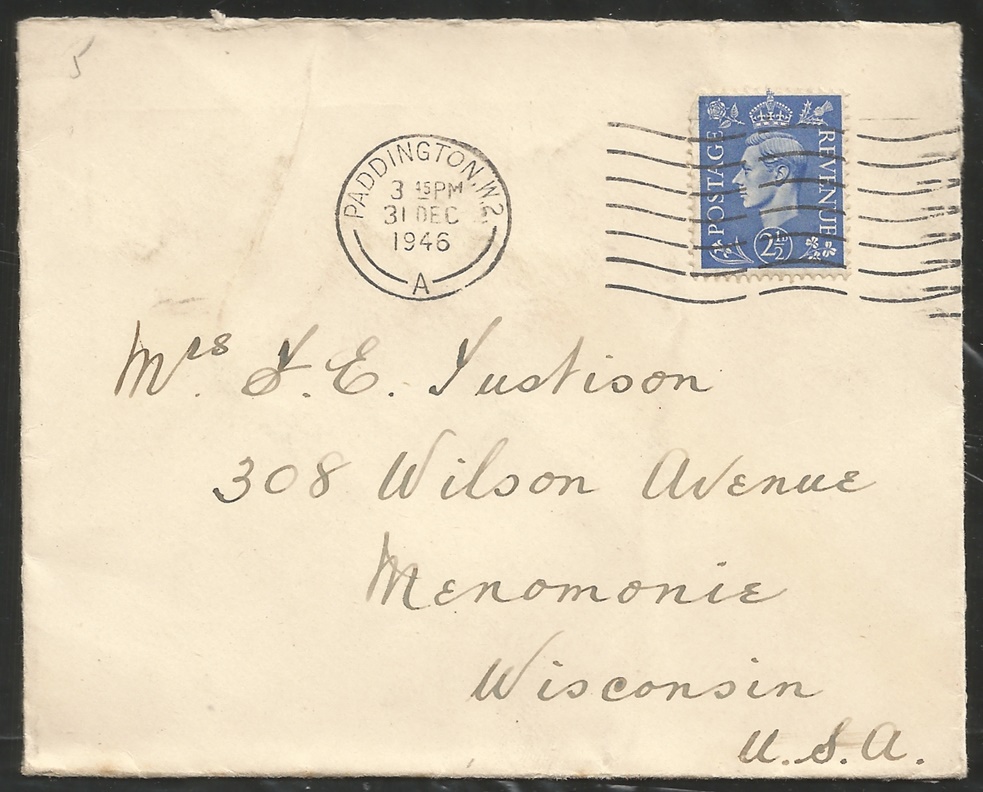 5
PADDINGTON. W.2.
3 45 PM
31 DEC
1946
A
POSTAGE REVENUE
2½D
Mrs. J. E. Justison
308 Wilson Avenue
Menomonie
Wisconsin
U.S.A.